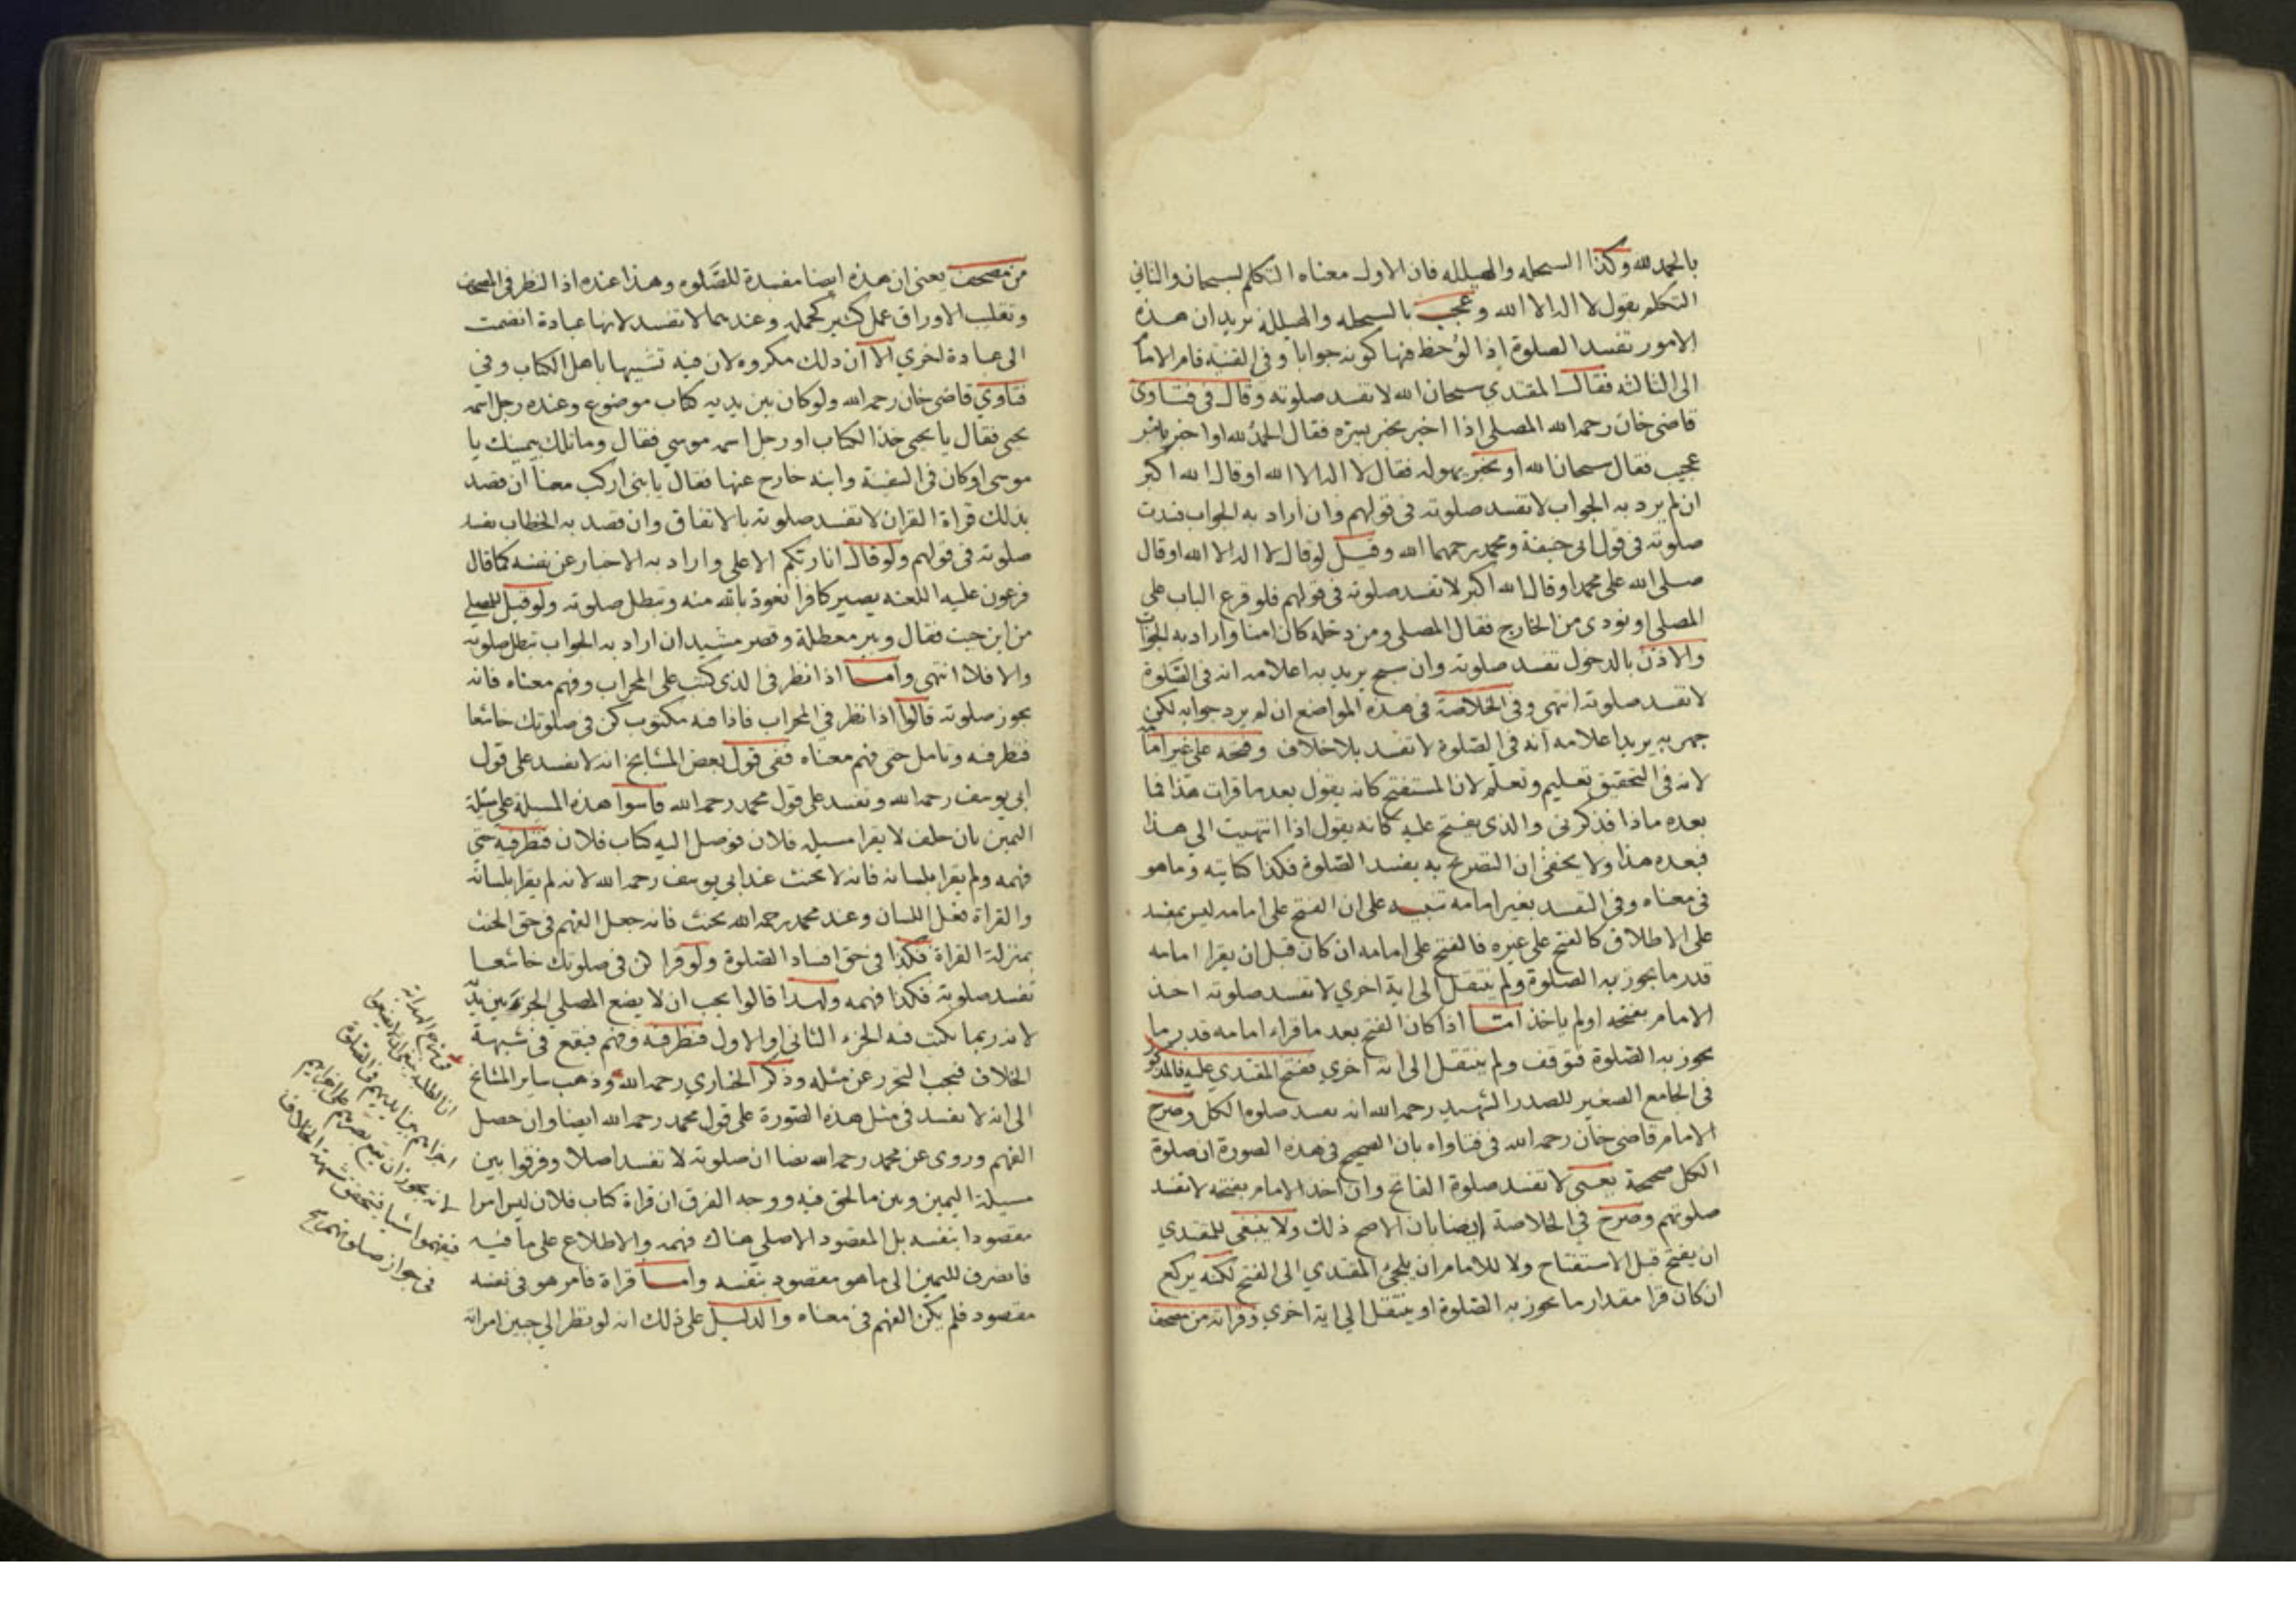 بالحمد لله وكذا السبحله والهيلله فان الاول معناه التكلم بسبحان والثاني
التكلم بقول لا اله الا الله وعجب بالسبحله والهيللة يريد ان هذه
الامور تفسد الصلوة اذا لوحظ فيها كونه جوابا وفي القنية قام الامام
الى الثالثه فقال المقتدي سبحان الله لا تفسد صلوته وقال في فتاوى
قاضي خان رحمه الله المصلي اذا اخبر بخبر يسره فقال الحمد لله او اخبر بامر
عجيب فقال سبحان الله او بخبر يهوله فقال لا اله الا الله او قال الله اكبر
ان لم يرد به الجواب لا تفسد صلوته في قولهم وان اراد به الجواب فسدت
صلوته في قول ابي حنيفة ومحمد رحمهما الله وقيل لو قال لا اله الا الله او قال
صلى الله على محمد او قال الله اكبر لا تفسد صلوته في قولهم فلو قرع الباب على
المصلي او نودى من الخارج فقال المصلي ومن دخله كان امنا واراد به الجواب
والاذن بالدخول تفسد صلوته وان سبح يريد به اعلامه انه في الصلوة
لا تفسد صلوته انتهى وفي الخلاصة في هذه المواضع ان لم يرد جوابه لكن
جهر به يريد اعلامه انه في الصلوة لا تفسد بلا خلاف وفتحه على غير امامه
لانه في التحقيق تعليم وتعلم لان المستفتح كانه يقول بعد ما قرات هذا فما
بعده ماذا فذكرني والذي يفتح عليه كانه يقول اذا انتهيت الى هذا
فبعده هذا ولا يخفى ان التصريح به يفسد الصلوة فكذا كنايته وما هو
في معناه وفي التقييد بغير امامه تنبيه على ان الفتح على امامه ليس بمفسد
على الاطلاق كالفتح على غيره فالفتح على امامه ان كان قبل ان يقرا امامه
قدر ما يجوز به الصلوة ولم ينتقل الى اية اخري لا تفسد صلوته اخذ
الامام بفتحه اولم ياخذ امتا اذا كان الفتح بعد ما قراء امامه قدر ما
يجوز به الصلوة فتوقف ولم ينتقل الى اية اخري ففتح المقتدي عليه فالمذكور
في الجامع الصغير للصدر الشهيد رحمه الله انه تفسد صلوة الكل وصرح
الامام قاضي خان رحمه الله في فتاواه بان الصحيح في هذه الصورة ان صلوة
الكل صحيحة يعني لا تفسد صلوة الفاتح وان اخذ الامام بفتحه لا تفسد
صلوتهم وصرح في الخلاصة ايضا بان الاصح ذلك ولا ينبغي للمقتدي
ان يفتح قبل الاستفتاح ولا للامام ان يلجئ المقتدي الى الفتح لكنه يركع
ان كان قرا مقدار ما يجوز به الصلوة او ينتقل الى اية اخري وقراته من مصحف
من مصحف يعني ان هذه ايضا مفسدة للصلوه وهذا عنده اذا النظر في المصحف
وتقليب الاوراق عمل كثير كحمله وعندهما لا تفسد لانها عبادة انضمت
الى عبادة اخري الا ان ذلك مكروه لان فيه تشبيها باهل الكتاب وفي
فتاوي قاضي خان رحمه الله ولو كان بين يديه كتاب موضوع وعنده رجل اسمه
يحيى فقال يا يحيى خذ الكتاب او رجل اسمه موسي فقال وما تلك بيمينك يا
موسى او كان في السفينة وابنه خارج عنها فقال يا بني اركب معنا ان قصد
بذلك قراة القران لا تفسد صلوته بالاتفاق وان قصد به الخطاب تفسد
صلوته في قولهم ولو قال انا ربكم الاعلى واراد به الاخبار عن نفسه كما قال
فرعون عليه اللعنه يصير كافرا نعوذ بالله منه وتبطل صلوته ولو قيل للمصلي
من اين جيت فقال وبير معطلة وقصر مشيد ان اراد به الجواب تبطل صلوته
والا فلا انتهى وامسا اذا نظر في الذي كتب على المحراب وفهم معناه فانه
يجوز صلوته قالوا اذا نظر في المحراب فاذا فيه مكتوب كن في صلوتك خاشعا
فنظر فيه وتامل حتى فهم معناه ففي قول بعض المشايخ انه لا تفسد على قول
ابي يوسف رحمه الله وتفسد على قول محمد رحمه الله قاسوا هذه المسيلة على مسئلة
اليمين بان حلف لا يقرا مسيله فلان فوصل اليه كتاب فلان فنظر فيه حتى
فهمه ولم يقرا بلسانه فانه لا يحنث عند ابي يوسف رحمه الله لانه لم يقرا بلسانه
والقراة فعل اللسان وعند محمد رحمه الله يحنث فانه جعل الفهم في حق الحنث
بمنزلة القراة فكذا في حق افساد الصلوة ولو قرا كن في صلوتك خاشعا
تفسد صلوته فكذا فهمه ولهذا قالوا يجب ان لا يضع المصلي الجزء بين يديه
لانه ربما يكتب فيه الجزء الثاني او الاول فنظر فيه وفهم فيقع في شبهة
الخلاف فيجب التحرز عن مثله وذكر الحفاري رحمه الله وذهب ساير المشايخ
الى انه لا تفسد في مثل هذه الصورة على قول محمد رحمه الله ايضا وان حصل
الفهم وروى عن محمد رحمه الله نصا ان صلوته لا تفسد اصلا وفرقوا بين
مسيلة اليمين وبين ما نحن فيه ووجه الفرق ان قراة كتاب فلان ليس امرا
مقصودا بنفسه بل المقصود الاصلي هناك فهمه والاطلاع على ما فيه
فانصرف لليمين الى ما هو مقصود بنفسه وامسا قراة فامر هو في نفسه
مقصود فلم يكن الفهم في معناه والدليل على ذلك انه لو نظر الى جبين امراته
في شرح الهداية
ان الطلبة ينبغي ان لا يضعوا
اجزاءهم بين ايديهم في الصلوة
لانه يجوز ان يقع بصرهم على اجزايهم
فيفهموا شيا فيتحقق شبهة الخلاف
في جواز صلوتهم